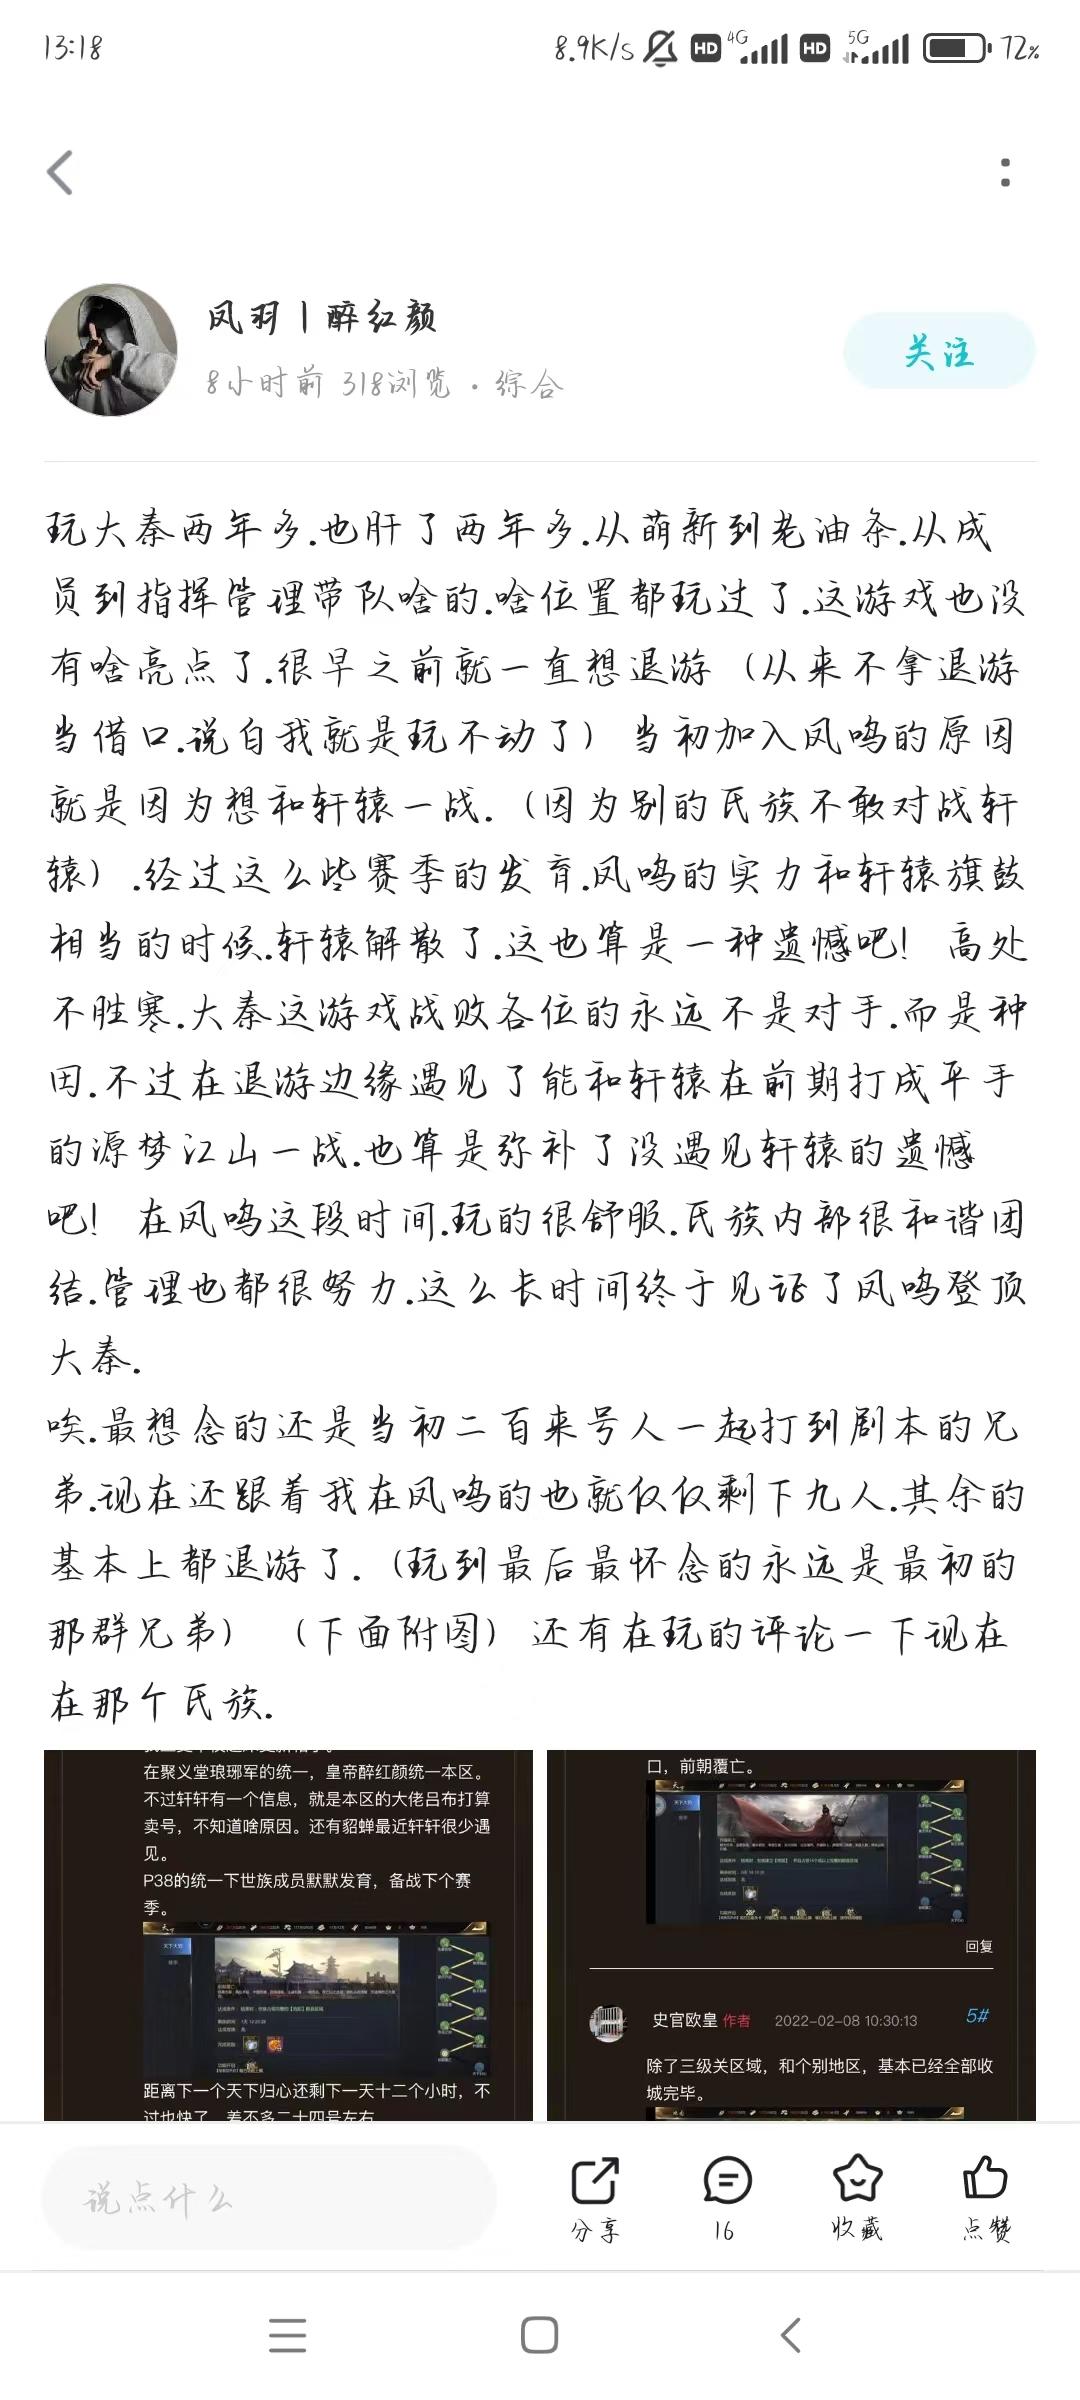 13:18
8.9K/s HD 4G HD 5G 72%
凤羽丨醉红颜
8小时前 318浏览·综合
关注
玩大秦两年多.也肝了两年多.从萌新到老油条.从成
员到指挥管理带队啥的.啥位置都玩过了.这游戏也没
有啥亮点了.很早之前就一直想退游（从来不拿退游
当借口.说白我就是玩不动了）当初加入凤鸣的原因
就是因为想和轩辕一战.（因为别的氏族不敢对战轩
辕）.经过这么些赛季的发育.凤鸣的实力和轩辕旗鼓
相当的时候.轩辕解散了.这也算是一种遗憾吧！高处
不胜寒.大秦这游戏战败各位的永远不是对手.而是种
田.不过在退游边缘遇见了能和轩辕在前期打成平手
的源梦江山一战.也算是弥补了没遇见轩辕的遗憾
吧！在凤鸣这段时间.玩的很舒服.氏族内部很和谐团
结.管理也都很努力.这么长时间终于见证了凤鸣登顶
大秦.
唉.最想念的还是当初二百来号人一起打到剧本的兄
弟.现在还跟着我在凤鸣的也就仅仅剩下九人.其余的
基本上都退游了.（玩到最后最怀念的永远是最初的
那群兄弟）（下面附图）还有在玩的评论一下现在
在那个氏族.
在聚义堂琅琊军的统一，皇帝醉红颜统一本区。
不过轩轩有一个信息，就是本区的大佬吕布打算
卖号，不知道啥原因。还有貂蝉最近轩轩很少遇
见。
P38的统一下世族成员默默发育，备战下个赛
季。
距离下一个天下归心还剩下一天十二个小时，不
过也快了，差不多二十四号左右
口，前朝覆亡。
回复
史官欧皇 作者 2022-02-08 10:30:13 5#
除了三级关区域，和个别地区，基本已经全部收
城完毕。
说点什么
分享
16
收藏
点赞